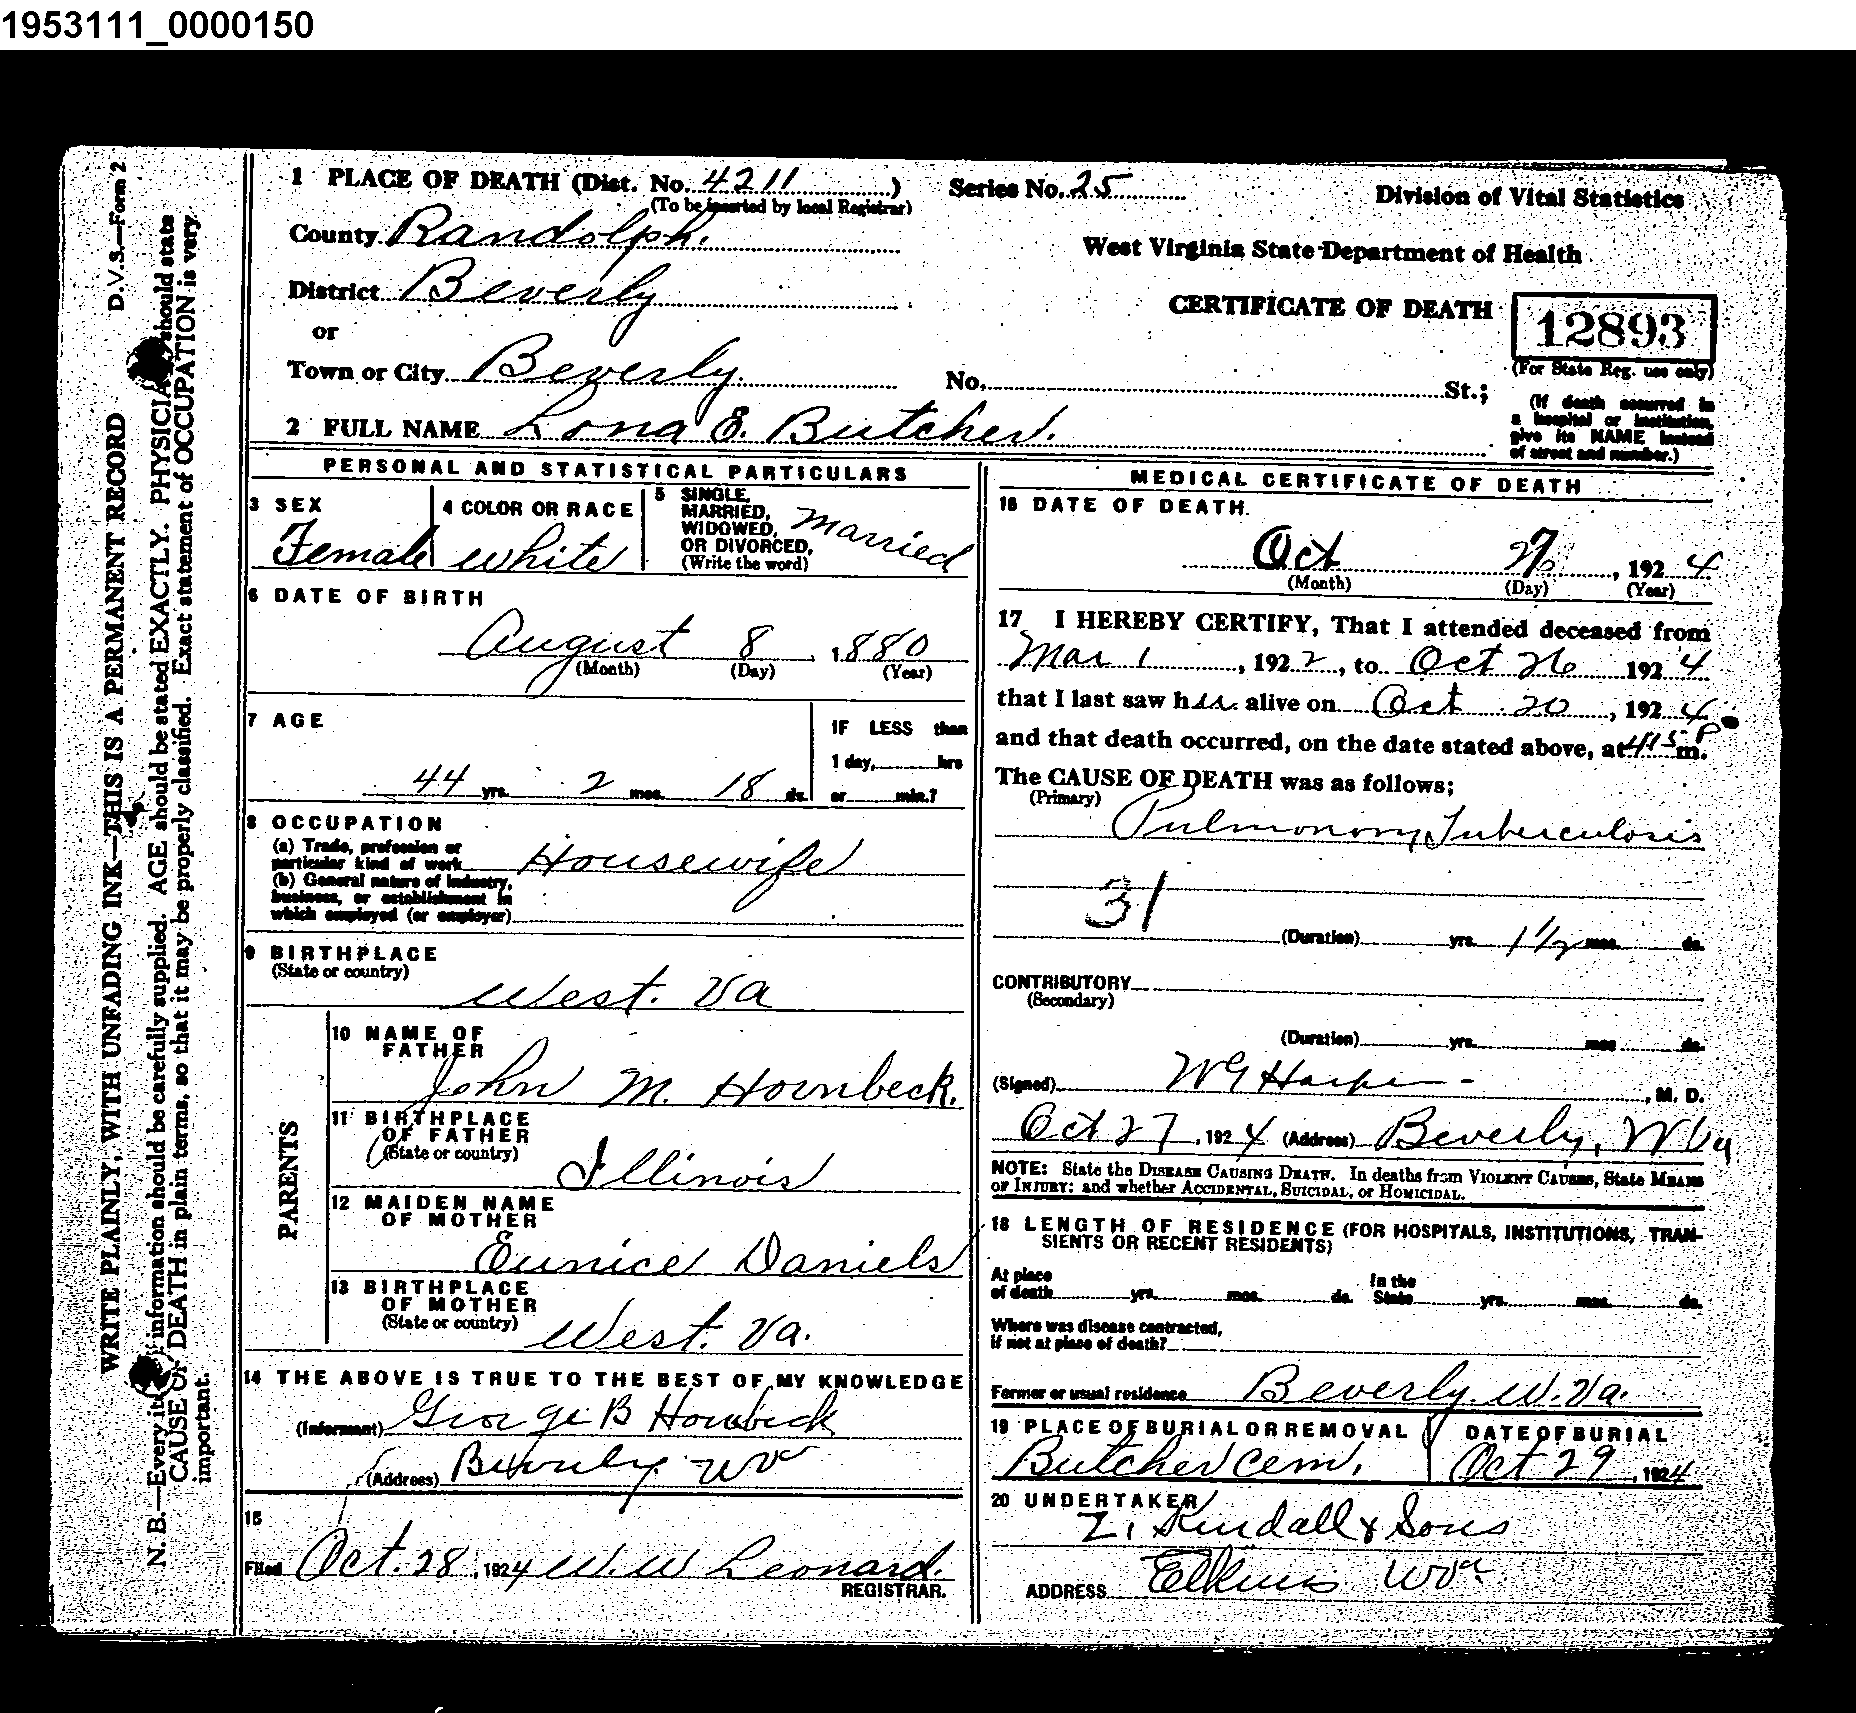 1953111_0000150
1 PLACE OF DEATH (Dist. No. 4211 ) Series No. 25
(To be inserted by local Registrar)
Division of Vital Statistics
County Randolph.
West Virginia State Department of Health
District Beverly
CERTIFICATE OF DEATH
12893
(For State Reg. use only)
or
Town or City Beverly.
No. St.;
(If death occurred in
a hospital or institution,
give its NAME instead
of street and number.)
2 FULL NAME Lona E. Butcher.
PERSONAL AND STATISTICAL PARTICULARS
3 SEX
Female
4 COLOR OR RACE
White
5 SINGLE,
MARRIED,
WIDOWED,
OR DIVORCED,
(Write the word)
Married
6 DATE OF BIRTH
August 8, 1880
(Month) (Day) (Year)
7 AGE
44 yrs. 2 mos. 18 ds.
IF LESS than
1 day, hrs
or min.?
8 OCCUPATION
(a) Trade, profession or
particular kind of work Housewife
(b) General nature of industry,
business, or establishment in
which employed (or employer)
9 BIRTHPLACE
(State or country)
West. Va
PARENTS
10 NAME OF
FATHER
John M. Hornbeck.
11 BIRTHPLACE
OF FATHER
(State or country)
Illinois
12 MAIDEN NAME
OF MOTHER
Eunice Daniels
13 BIRTHPLACE
OF MOTHER
(State or country)
West. Va.
14 THE ABOVE IS TRUE TO THE BEST OF MY KNOWLEDGE
(Informant) George B Hornbeck
(Address) Beverly W Va
15
Filed Oct. 28, 1924 W. W Leonard.
REGISTRAR.
MEDICAL CERTIFICATE OF DEATH
16 DATE OF DEATH.
Oct 26, 1924
(Month) (Day) (Year)
17 I HEREBY CERTIFY, That I attended deceased from
Mar 1, 1922, to Oct 26 1924
that I last saw her alive on Oct 20, 1924
and that death occurred, on the date stated above, at 415 P m.
The CAUSE OF DEATH was as follows;
(Primary)
Pulmonory Tuberculosis
31
(Duration) yrs. 1 1/2 mos. ds.
CONTRIBUTORY
(Secondary)
(Duration) yrs. mos ds.
(Signed) W G Harper, M. D.
Oct 27, 1924 (Address) Beverly, W Va
NOTE: State the DISEASE CAUSING DEATH. In deaths from VIOLENT CAUSES, State MEANS
OF INJURY; and whether ACCIDENTAL, SUICIDAL, or HOMICIDAL.
18 LENGTH OF RESIDENCE (FOR HOSPITALS, INSTITUTIONS, TRAN-
SIENTS OR RECENT RESIDENTS)
At place
of death yrs. mos. ds.
In the
State yrs. mos. ds.
Where was disease contracted,
if not at place of death?
Former or usual residence Beverly. W. Va.
19 PLACE OF BURIAL OR REMOVAL
Butcher Cem.
DATE OF BURIAL
Oct 29, 1924
20 UNDERTAKER
Z. Kendall & Sons
ADDRESS Elkins W Va
D.V.S.—Form 2
WRITE PLAINLY, WITH UNFADING INK—THIS IS A PERMANENT RECORD
N. B.—Every item of information should be carefully supplied. AGE should be stated EXACTLY. PHYSICIANS should state
CAUSE OF DEATH in plain terms, so that it may be properly classified. Exact statement of OCCUPATION is very
important.